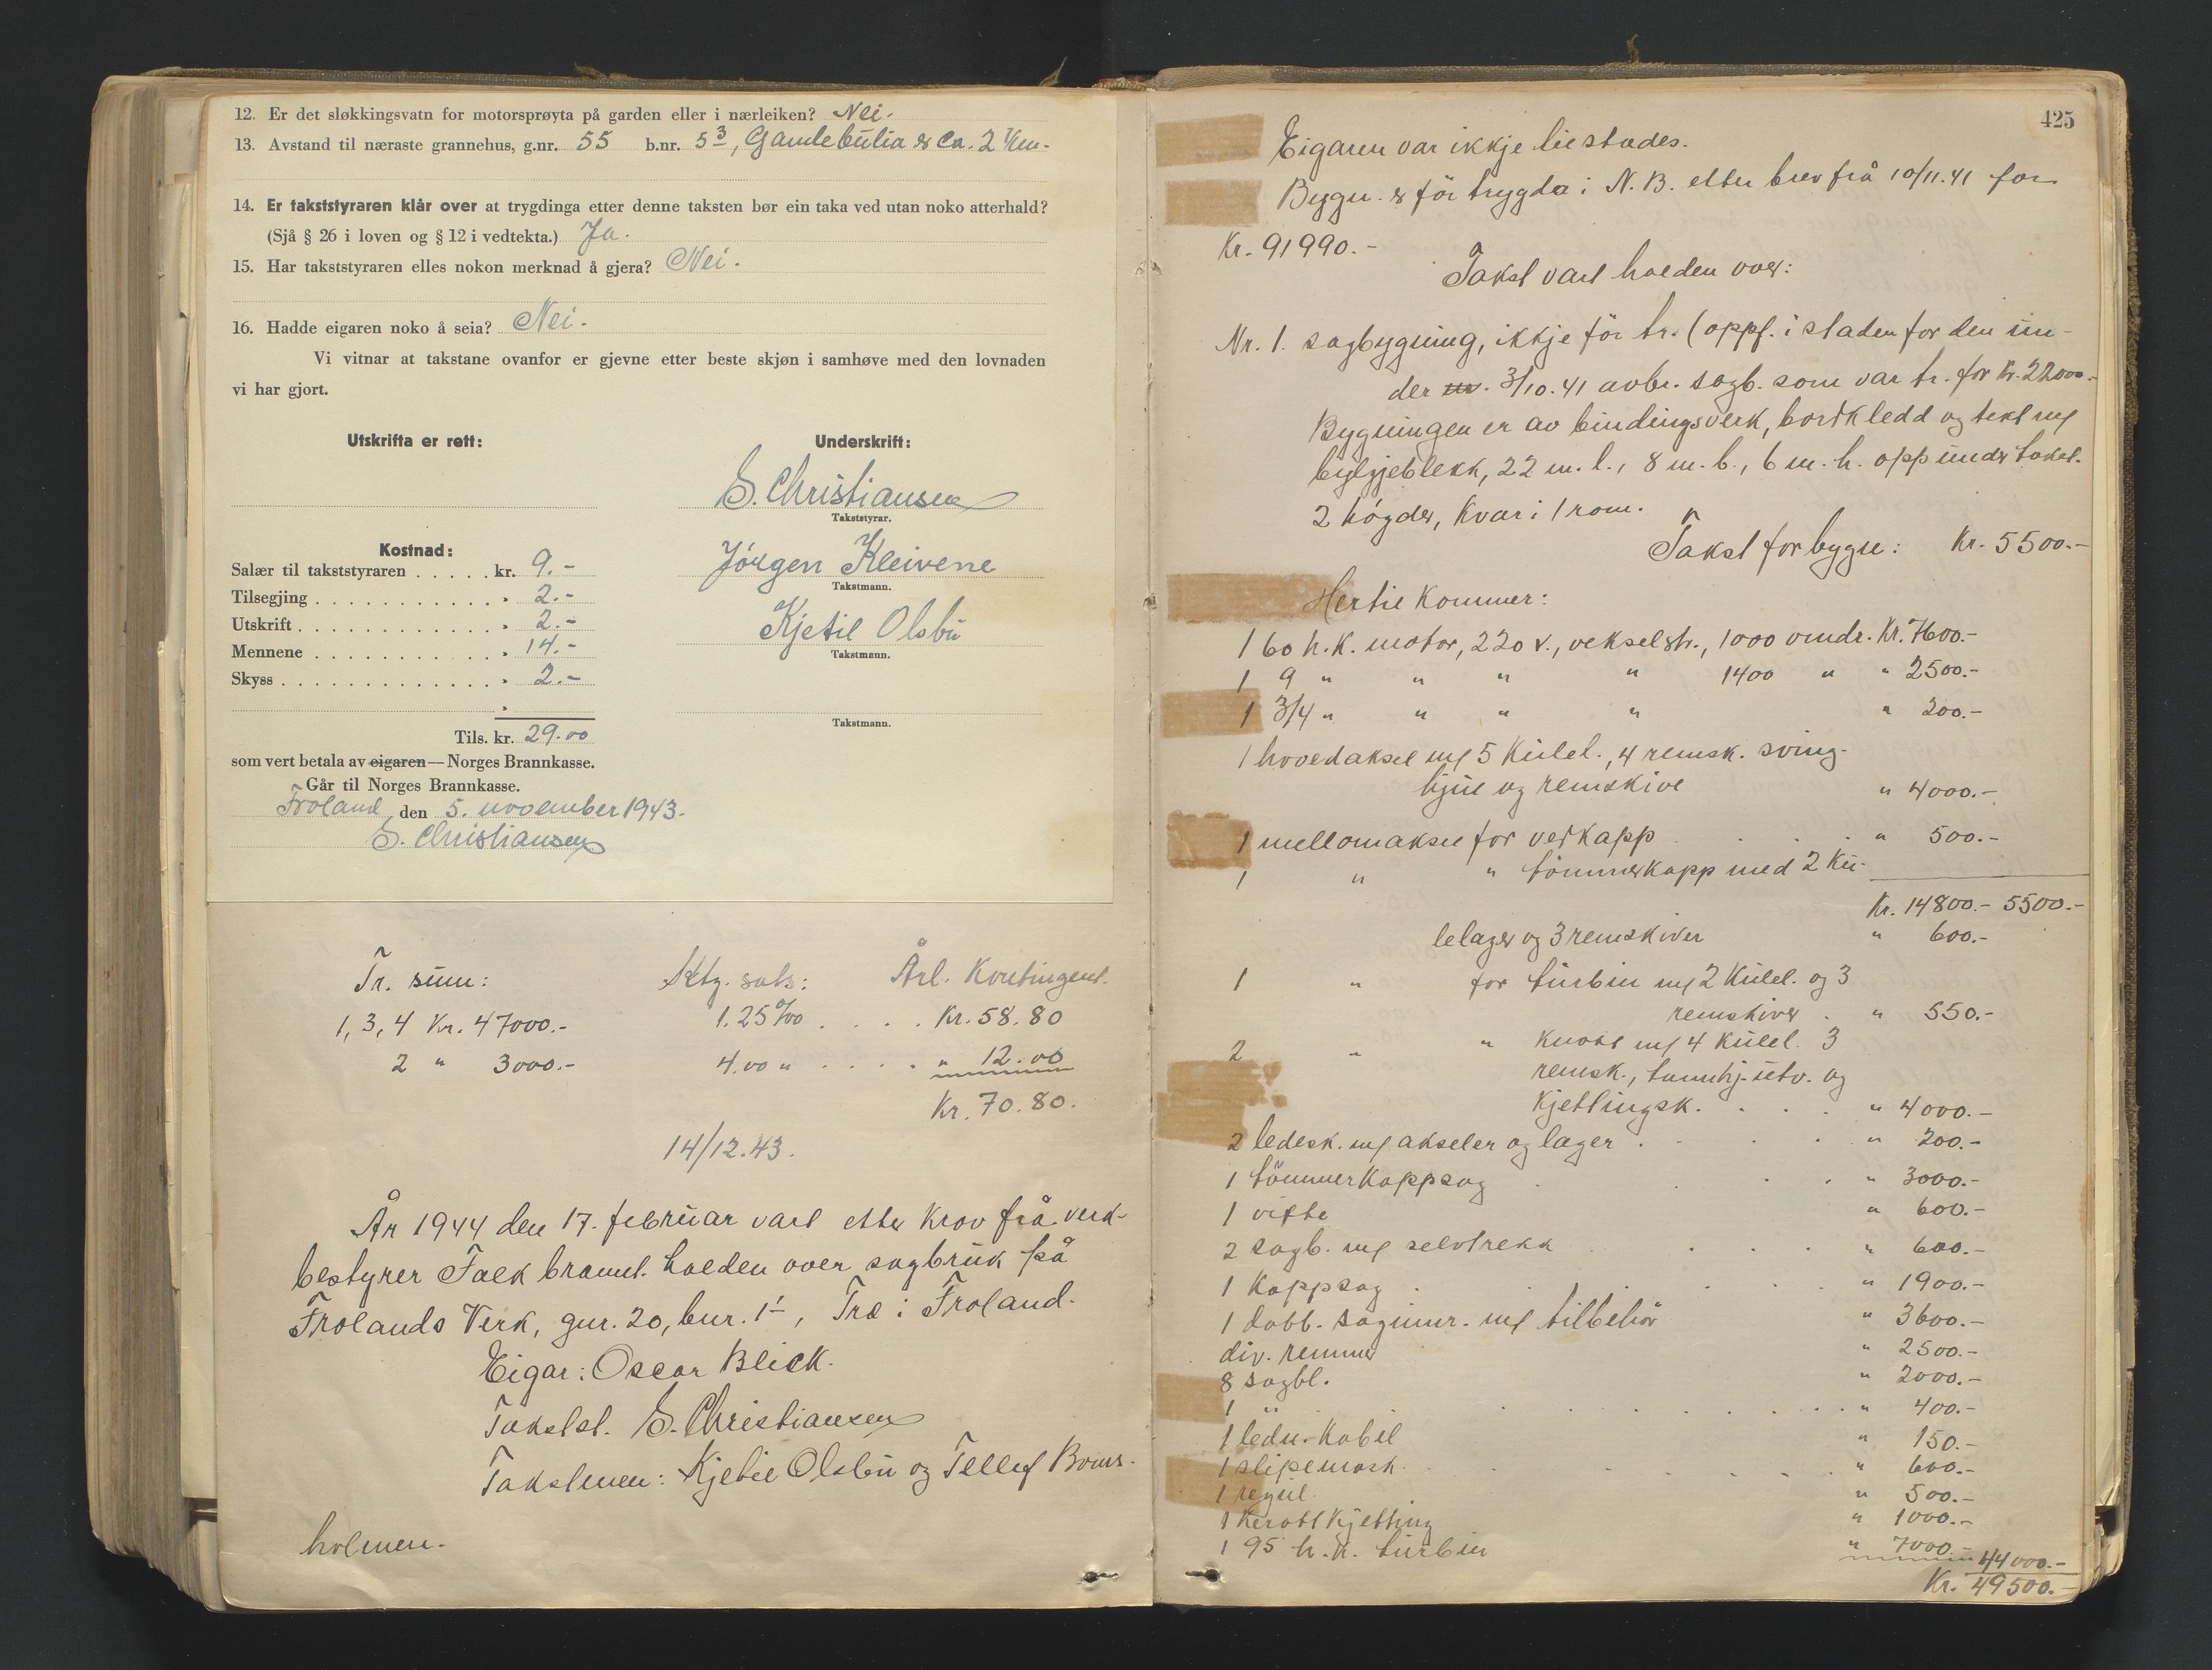 12. Er det sløkkingsvatn for motorsprøyta på garden eller i nærleiken? Nei.
13. Avstand til næraste grannehus, g.nr. 55 b.nr. 5³, Gamlebulia er ca. 2 km.
14. Er takststyraren klår over at trygdinga etter denne taksten bør ein taka ved utan noko atterhald?
(Sjå § 26 i loven og § 12 i vedtekta.) Ja.
15. Har takststyraren elles nokon merknad å gjera? Nei.
16. Hadde eigaren noko å seia? Nei.
Vi vitnar at takstane ovanfor er gjevne etter beste skjøn i samhøve med den lovnaden
vi har gjort.
Utskrifta er rett:
Underskrift:
S. Christiansen
Takststyrar.
Jörgen Kleivene
Takstmann.
Kjetil Olsbu
Takstmann.
Takstmann.
Kostnad:
Salær til takststyraren . . . . . kr. 9.-
Tilsegjing . . . . . . . . . . . . " 2.-
Utskrift . . . . . . . . . . . . . " 2.-
Mennene . . . . . . . . . . . . " 14.-
Skyss . . . . . . . . . . . . . . " 2.-
"
Tils. kr. 29.00
som vert betala av eigaren — Norges Brannkasse.
Går til Norges Brannkasse.
Froland den 5. november 1943.
S. Christiansen
Tr. sum: Ktg. sats: Årl. Kontingent.
1, 3, 4 Kr. 47000.- 1.25 ‰ . . . . Kr. 58.80
2 " 3000.- 4.00 " . . . . " 12.00
Kr. 70.80.
14/12.43.
År 1944 den 17. februar vart etter krav frå verk-
bestyrer Falk brannt. halden over sagbruk på
Frolands Verk, gnr. 20, bnr. 1, Træ i Froland.
Eigar: Oscar Blick.
Takstst. S. Christiansen
Takstmen: Kjetil Olsbu og Tellef Boms-
holmen.
425
Eigaren var ikkje tilstades.
Bygn. er för trygda i N. B. etter brev frå 10/11.41 for
Kr. 91990.-
Takst vart halden over:
Nr. 1. sagbygning, ikkje för tr. (oppf. i staden for den un-
der nr. 3/10.41 avbr. sagb. som var tr. for Kr. 22000.-
Bygningen er av bindingsverk, bordkledd og tekt m/
bylgjeblekk, 22 m. l., 8 m. b., 6 m. h. opp under taket.
2 högder, kvar i 1 rom.
Takst for bygn: Kr. 5500.-
Hertil kommer:
1 60 h.k. motor, 220 v., vekselstr., 1000 omdr. Kr. 7600.-
1 9 " " " " 1400 " " 2500.-
1 3/4 " " " " " 200.-
1 hovedaksel m/ 5 kulel., 4 remsk. sving-
hjul og remskive " 4000.-
1 mellomaksel for vedkapp . . . . " 500.-
1 " " tömmerkapp med 2 ku-
Kr. 14800.- 5500.-
lelager og 3 remskiver " 600.-
1 " for turbin m/ 2 kulel. og 3
remskiver . " 550.-
2 " " knott m/ 4 kulel. 3
remsk., tannhj. utv. og
kjettingsk. . . . . " 4000.-
2 ledesk. m/ akseler og lager . . . . " 200.-
1 tömmerkappsag . . . . " 3000.-
1 vifte " 600.-
2 sagb. m/ selvtrekk . . . . " 600.-
1 kappsag . . . . " 1900.-
1 dobb. saginnr. m/ tilbehör " 3600.-
div. remmer " 2500.-
8 sagbl. " 2000.-
1 " . . . . . . . . " 400.-
1 ledn. kabel " 150.-
1 slipemask. . . . . . . . " 600.-
1 regul. " 500.-
1 kjetting " 1000.-
1 95 h.k. turbin " 7000.- 44000.-
Kr. 49500.-